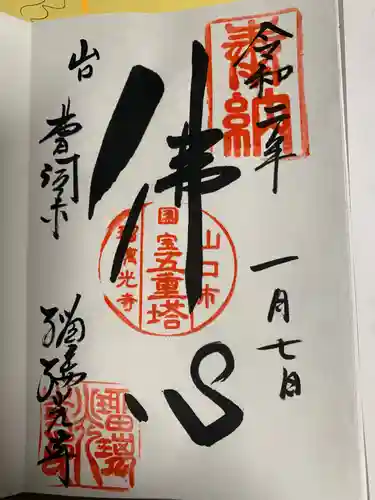 奉納
令和二年
一月七日
佛心
山口市
国宝五重塔
瑠璃光寺
山口
曹洞宗
瑠璃光寺
瑠璃光寺